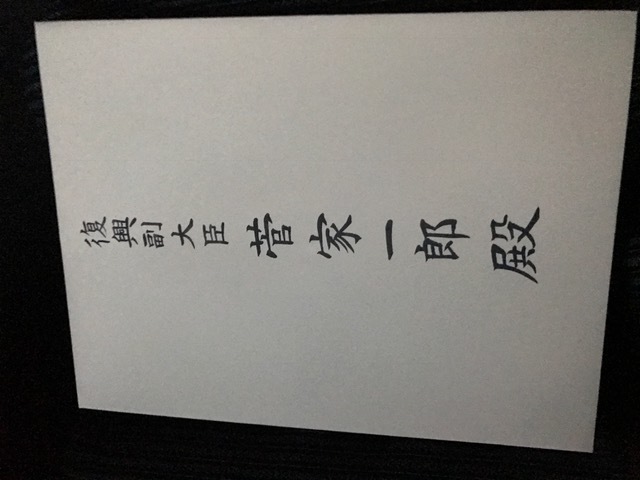 復興副大臣 菅家一郎 殿